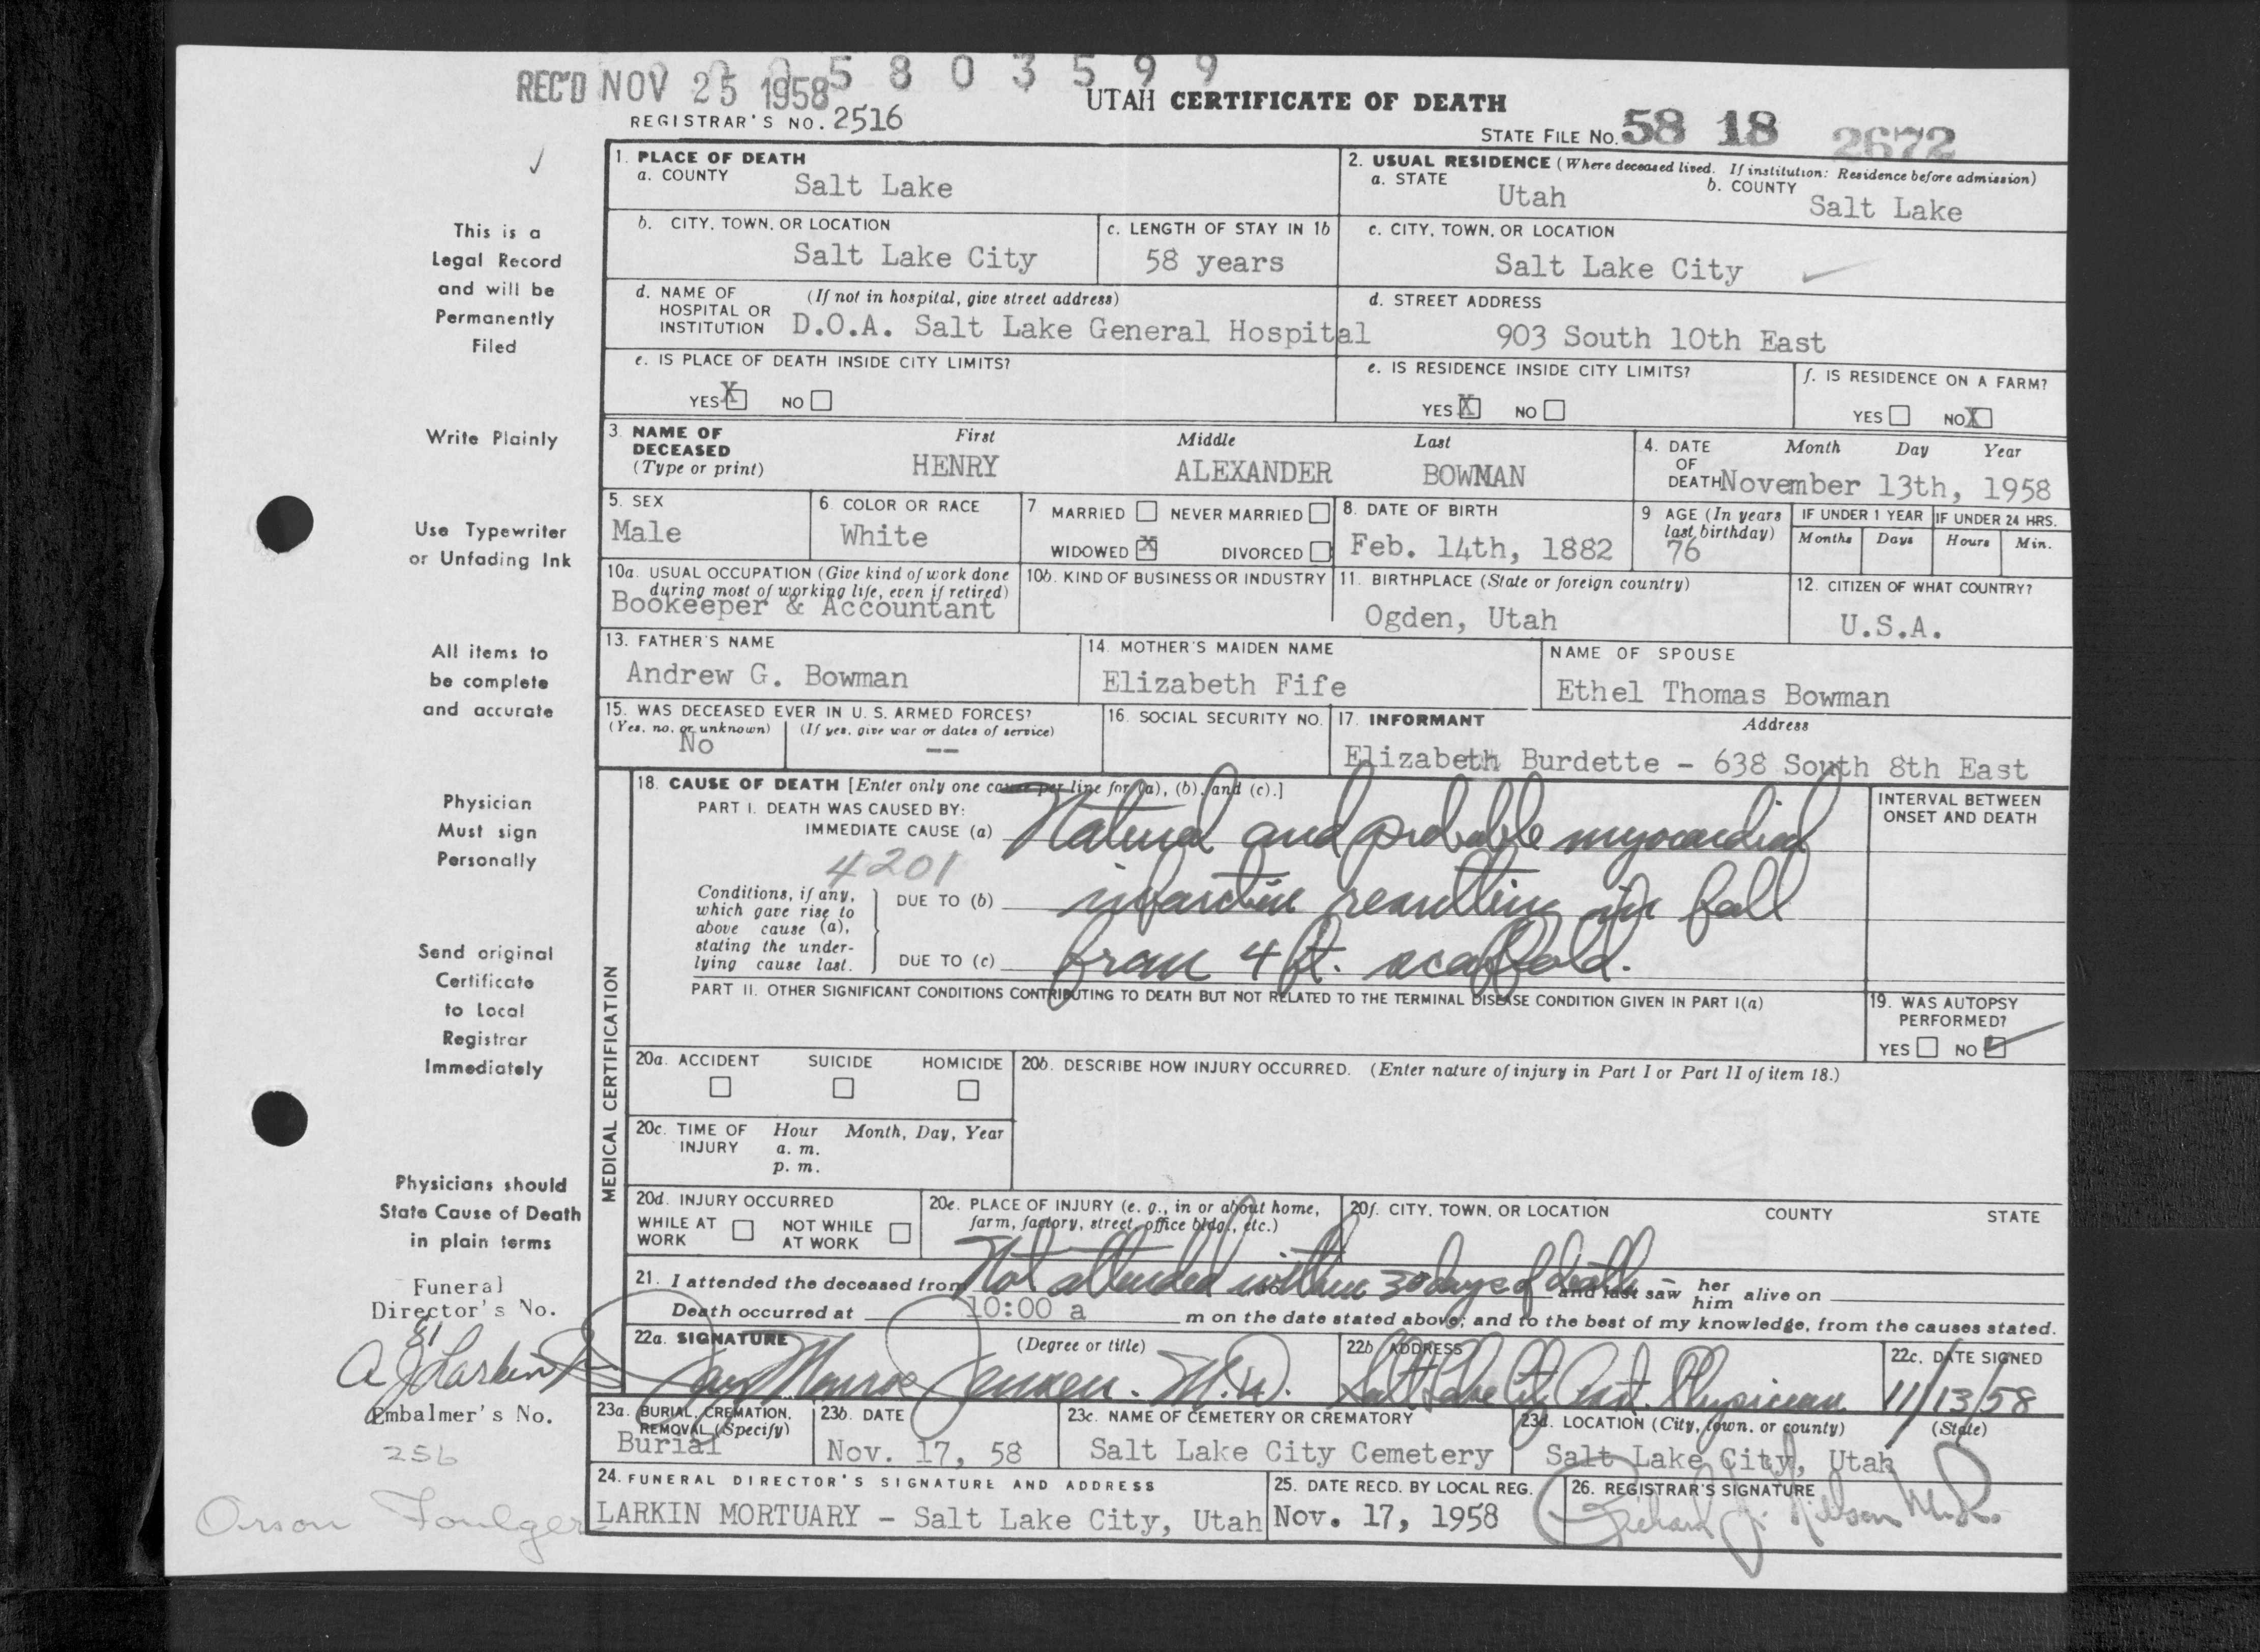 5803599
REC'D NOV 25 1958
UTAH CERTIFICATE OF DEATH
REGISTRAR'S NO. 2516
STATE FILE NO. 58 18 2672
This is a
Legal Record
and will be
Permanently
Filed
Write Plainly
Use Typewriter
or Unfading Ink
All items to
be complete
and accurate
Physician
Must sign
Personally
Send original
Certificate
to Local
Registrar
Immediately
Physicians should
State Cause of Death
in plain terms
Funeral
Director's No.
81
A J Larkin
Embalmer's No.
256
Orson Foulger
1. PLACE OF DEATH
a. COUNTY Salt Lake
2. USUAL RESIDENCE (Where deceased lived. If institution: Residence before admission)
a. STATE Utah b. COUNTY Salt Lake
b. CITY, TOWN, OR LOCATION Salt Lake City
c. LENGTH OF STAY IN 1b 58 years
c. CITY, TOWN, OR LOCATION Salt Lake City
d. NAME OF HOSPITAL OR INSTITUTION (If not in hospital, give street address)
D.O.A. Salt Lake General Hospital
d. STREET ADDRESS
903 South 10th East
e. IS PLACE OF DEATH INSIDE CITY LIMITS?
YES X NO
e. IS RESIDENCE INSIDE CITY LIMITS?
YES X NO
f. IS RESIDENCE ON A FARM?
YES NO X
3. NAME OF DECEASED (Type or print)
First Middle Last
HENRY ALEXANDER BOWMAN
4. DATE OF DEATH Month Day Year
November 13th, 1958
5. SEX
Male
6. COLOR OR RACE
White
7 MARRIED NEVER MARRIED
WIDOWED X DIVORCED
8. DATE OF BIRTH
Feb. 14th, 1882
9 AGE (In years last birthday)
76
IF UNDER 1 YEAR IF UNDER 24 HRS.
Months Days Hours Min.
10a. USUAL OCCUPATION (Give kind of work done during most of working life, even if retired)
Bookeeper & Accountant
10b. KIND OF BUSINESS OR INDUSTRY
11. BIRTHPLACE (State or foreign country)
Ogden, Utah
12. CITIZEN OF WHAT COUNTRY?
U.S.A.
13. FATHER'S NAME
Andrew G. Bowman
14. MOTHER'S MAIDEN NAME
Elizabeth Fife
NAME OF SPOUSE
Ethel Thomas Bowman
15. WAS DECEASED EVER IN U. S. ARMED FORCES?
(Yes, no, or unknown) (If yes, give war or dates of service)
No --
16. SOCIAL SECURITY NO.
17. INFORMANT Address
Elizabeth Burdette - 638 South 8th East
MEDICAL CERTIFICATION
18. CAUSE OF DEATH [Enter only one cause per line for (a), (b), and (c).]
PART I. DEATH WAS CAUSED BY:
IMMEDIATE CAUSE (a) Natural and probable myocardial
4201
Conditions, if any, which gave rise to above cause (a), stating the underlying cause last.
DUE TO (b) infarction resulting in fall
DUE TO (c) from 4 ft. scaffold.
INTERVAL BETWEEN ONSET AND DEATH
PART II. OTHER SIGNIFICANT CONDITIONS CONTRIBUTING TO DEATH BUT NOT RELATED TO THE TERMINAL DISEASE CONDITION GIVEN IN PART I(a)
19. WAS AUTOPSY PERFORMED?
YES NO
20a. ACCIDENT SUICIDE HOMICIDE
20b. DESCRIBE HOW INJURY OCCURRED. (Enter nature of injury in Part I or Part II of item 18.)
20c. TIME OF INJURY Hour Month, Day, Year
a. m.
p. m.
20d. INJURY OCCURRED
WHILE AT WORK NOT WHILE AT WORK
20e. PLACE OF INJURY (e. g., in or about home, farm, factory, street, office bldg., etc.)
20f. CITY, TOWN, OR LOCATION COUNTY STATE
21. I attended the deceased from Not attended within 30 days of death and last saw her him alive on
Death occurred at 10:00 a m on the date stated above; and to the best of my knowledge, from the causes stated.
22a. SIGNATURE (Degree or title)
Jay Monroe Jensen. M.D.
22b ADDRESS
Salt Lake City Asst. Physician
22c. DATE SIGNED
11/13/58
23a. BURIAL, CREMATION, REMOVAL (Specify)
Burial
23b. DATE
Nov. 17, 58
23c. NAME OF CEMETERY OR CREMATORY
Salt Lake City Cemetery
23d. LOCATION (City, town, or county) (State)
Salt Lake City, Utah
24. FUNERAL DIRECTOR'S SIGNATURE AND ADDRESS
LARKIN MORTUARY - Salt Lake City, Utah
25. DATE RECD. BY LOCAL REG.
Nov. 17, 1958
26. REGISTRAR'S SIGNATURE
Richard J. Nilson M.D.